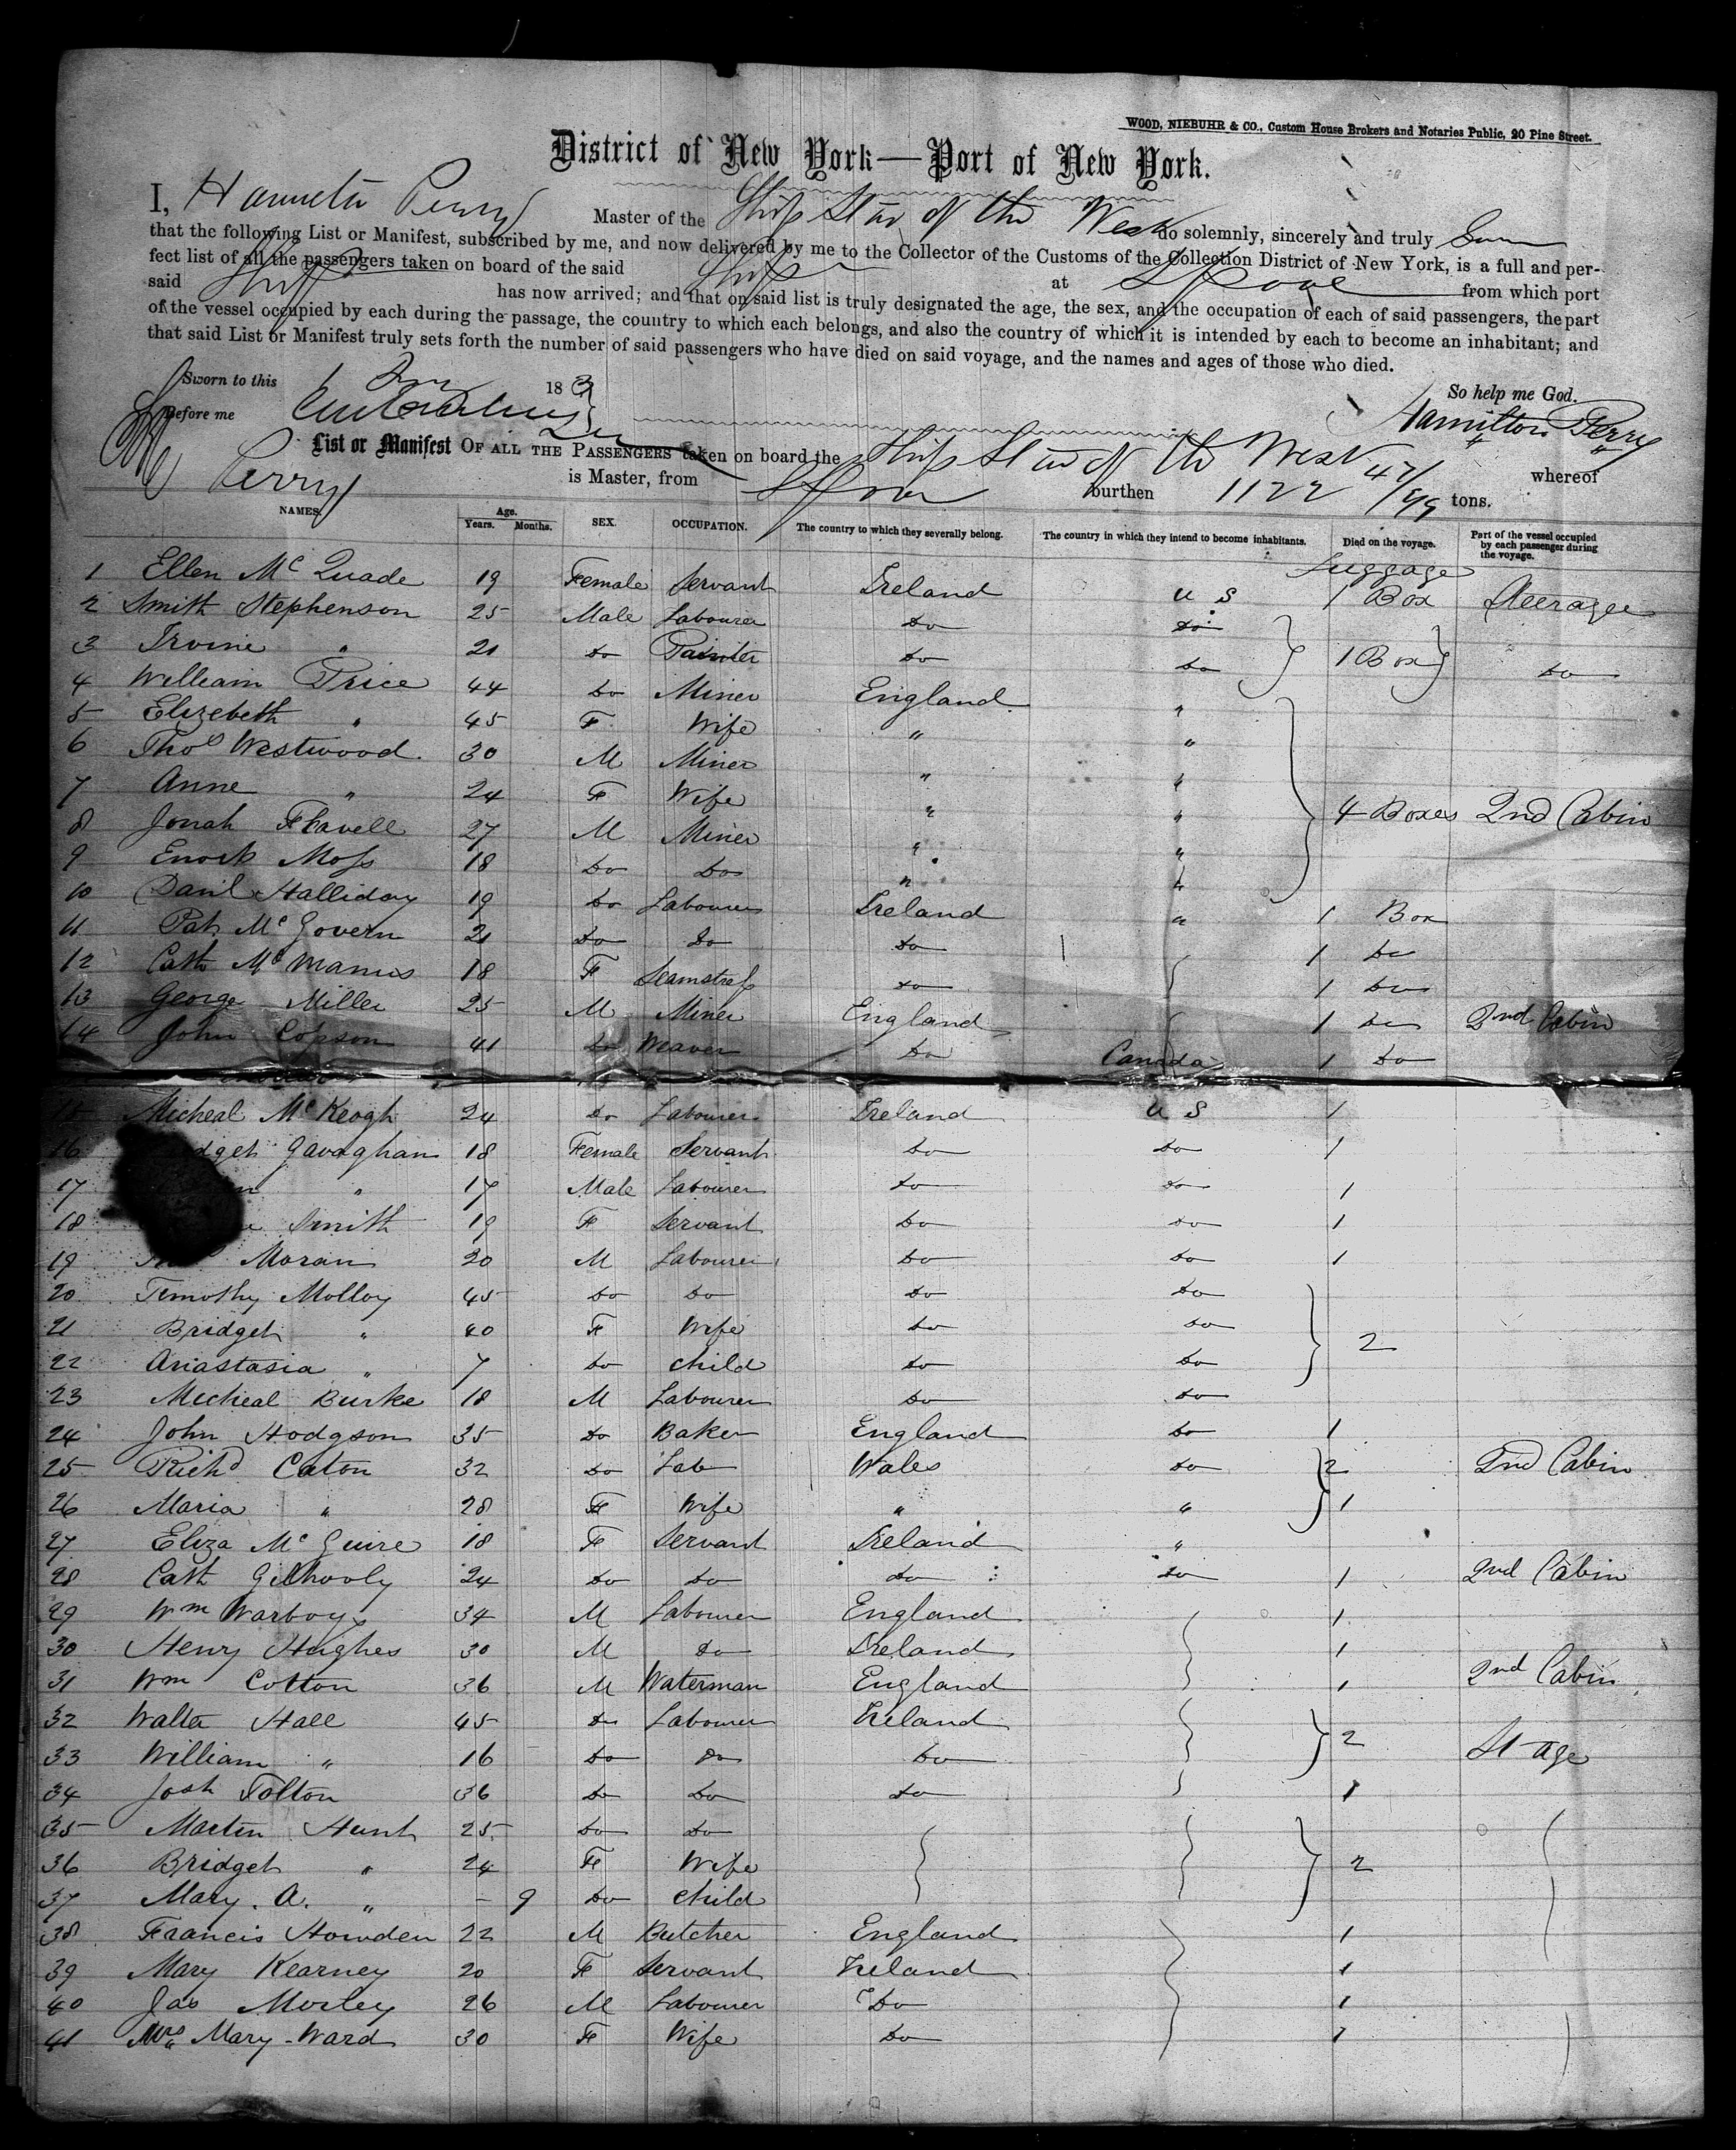 WOOD, NIEBUHR & CO., Custom House Brokers and Notaries Public, 20 Pine Street.
District of New York—Port of New York.
I, Hamilton Perry Master of the Ship Star of the West do solemnly, sincerely and truly
that the following List or Manifest, subscribed by me, and now delivered by me to the Collector of the Customs of the Collection District of New York, is a full and per-
fect list of all the passengers taken on board of the said Ship at L'pool from which port
said Ship has now arrived; and that on said list is truly designated the age, the sex, and the occupation of each of said passengers, the part
of the vessel occupied by each during the passage, the country to which each belongs, and also the country of which it is intended by each to become an inhabitant; and
that said List or Manifest truly sets forth the number of said passengers who have died on said voyage, and the names and ages of those who died.
Sworn to this 18 So help me God.
Before me Hamilton Perry
List or Manifest OF ALL THE PASSENGERS taken on board the Ship Star of the West whereof
Perry is Master, from L'pool burthen 1122 tons.
NAMES. Age. Years. Months. SEX. OCCUPATION. The country to which they severally belong. The country in which they intend to become inhabitants. Died on the voyage. Part of the vessel occupied by each passenger during the voyage.
Luggage
1 Ellen Mc Quade 19 Female Servant Ireland U S 1 Box Steerage
2 Smith Stephenson 25 Male Labourer Do Do
3 Irvine " 21 Do Painter Do Do 1 Box Do
4 William Price 44 Do Miner England "
5 Elizebeth " 45 F Wife " "
6 Thos Westwood 30 M Miner " "
7 Anne " 24 F Wife " "
8 Jonah Flavell 27 M Miner " " 4 Boxes 2nd Cabin
9 Enoch Moss 18 Do Do " "
10 Danl Halliday 19 Do Labourer Ireland " 1 Box
11 Pat Mc Govern 21 Do Do Do 1 Do
12 Cath Mc Manus 18 F Seamstress Do 1 Do
13 George Miller 25 M Miner England 1 Do 2nd Cabin
14 John Copson 41 Do Weaver Do Canada 1 Do
15 Micheal Mc Keogh 24 Do Labourer Ireland U S 1
16 Gavaghan 18 Female Servant Do Do 1
17 " 17 Male Labourer Do Do 1
18 Smith 19 F Servant Do Do 1
19 Moran 20 M Labourer Do Do 1
20 Timothy Molloy 45 Do Do Do Do
21 Bridget " 40 F Wife Do Do 2
22 Anastasia " 7 Do Child Do Do
23 Micheal Burke 18 M Labourer Do Do
24 John Hodgson 35 Do Baker England Do 1
25 Richd Caton 32 Do Lab Wales Do 2 2nd Cabin
26 Maria " 28 F Wife " " 1
27 Eliza Mc Guire 18 F Servant Ireland "
28 Cath Gilhooly 24 Do Do Do Do 1 2nd Cabin
29 Wm Warboys 34 M Labourer England 1
30 Henry Hughes 30 M Do Ireland 1
31 Wm Cotton 36 M Waterman England 1 2nd Cabin
32 Walter Hall 45 Do Labourer Ireland
33 William " 16 Do Do Do 2 St age
34 Josh Tolton 36 Do Do Do 1
35 Martin Hunt 25 Do Do
36 Bridget " 24 F Wife 2
37 Mary. A. " - 9 Do Child
38 Francis Howden 22 M Butcher England 1
39 Mary Kearney 20 F Servant Ireland 1
40 Jas Morley 26 M Labourer Do 1
41 Mrs Mary Ward 30 F Wife Do 1